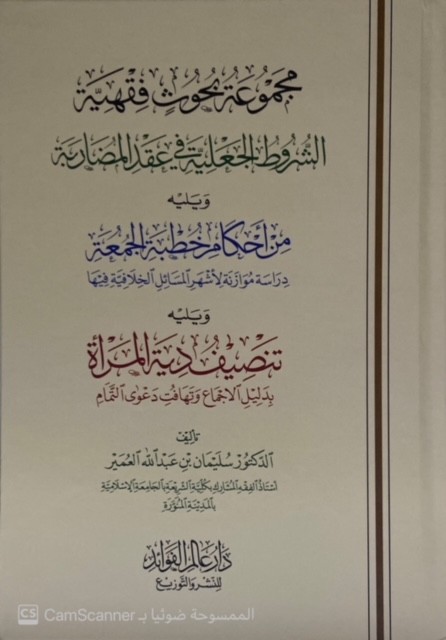 مجموعة بحوث فقهية
الشروط الجعلية في عقد المضاربة
ويليه
من أحكام خطبة الجمعة
دراسة موازنة لأشهر المسائل الخلافية فيها
ويليه
تنصيف دية المرأة
بدليل الإجماع وتهافت دعوى التمام
تأليف
الدكتور سليمان بن عبد الله العمير
أستاذ الفقه المشارك بكلية الشريعة بالجامعة الإسلامية
بالمدينة المنورة
دار عالم الفوائد
للنشر والتوزيع
CS CamScanner الممسوحة ضوئيا بـ